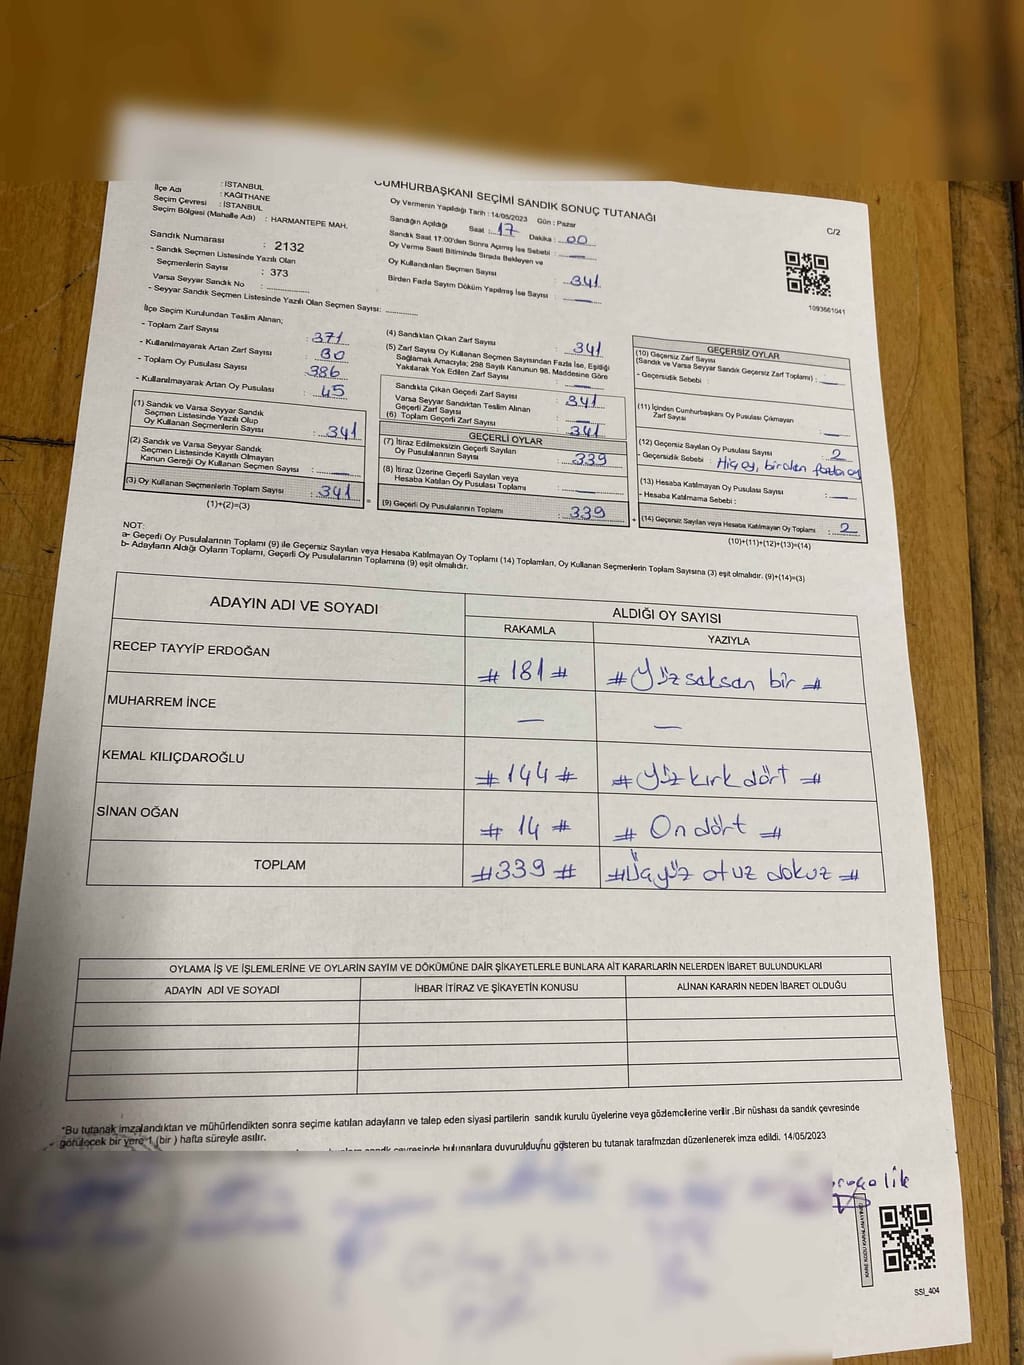 : İSTANBUL
İlçe Adı : KAĞITHANE
Seçim Çevresi : İSTANBUL
Seçim Bölgesi (Mahalle Adı) : HARMANTEPE MAH.
Sandık Numarası : 2132
- Sandık Seçmen Listesinde Yazılı Olan
Seçmenlerin Sayısı : 373
Varsa Seyyar Sandık No :
- Seyyar Sandık Listesinde Yazılı Olan Seçmen Sayısı:
CUMHURBAŞKANI SEÇİMİ SANDIK SONUÇ TUTANAĞI
Oy Vermenin Yapıldığı Tarih : 14/05/2023 Gün : Pazar
Sandığın Açıldığı Saat : 17 Dakika : 00
Sandık Saat 17:00'den Sonra Açılmış İse Sebebi : —
Oy Verme Saati Bitiminde Sırada Bekleyen ve
Oy Kullandırılan Seçmen Sayısı : 341
Birden Fazla Sayım Döküm Yapılmış İse Sayısı : —
C/2
1093661041
İlçe Seçim Kurulundan Teslim Alınan;
- Toplam Zarf Sayısı : 371
- Kullanılmayarak Artan Zarf Sayısı : 30
- Toplam Oy Pusulası Sayısı : 386
- Kullanılmayarak Artan Oy Pusulası : 45
(1) Sandık ve Varsa Seyyar Sandık
Seçmen Listesinde Yazılı Olup
Oy Kullanan Seçmenlerin Sayısı : 341
(2) Sandık ve Varsa Seyyar Sandık
Seçmen Listesinde Kayıtlı Olmayan
Kanun Gereği Oy Kullanan Seçmen Sayısı : —
(3) Oy Kullanan Seçmenlerin Toplam Sayısı : 341
(1)+(2)=(3)
=
(4) Sandıktan Çıkan Zarf Sayısı : 341
(5) Zarf Sayısı Oy Kullanan Seçmen Sayısından Fazla İse, Eşitliği
Sağlamak Amacıyla; 298 Sayılı Kanunun 98. Maddesine Göre
Yakılarak Yok Edilen Zarf Sayısı : —
Sandıkta Çıkan Geçerli Zarf Sayısı : 341
Varsa Seyyar Sandıktan Teslim Alınan
Geçerli Zarf Sayısı : —
(6) Toplam Geçerli Zarf Sayısı : 341
GEÇERLİ OYLAR
(7) İtiraz Edilmeksizin Geçerli Sayılan
Oy Pusulalarının Sayısı : 339
(8) İtiraz Üzerine Geçerli Sayılan veya
Hesaba Katılan Oy Pusulası Toplamı : —
(9) Geçerli Oy Pusulalarının Toplamı : 339
+
GEÇERSİZ OYLAR
(10) Geçersiz Zarf Sayısı
(Sandık ve Varsa Seyyar Sandık Geçersiz Zarf Toplamı) : —
- Geçersizlik Sebebi :
(11) İçinden Cumhurbaşkanı Oy Pusulası Çıkmayan
Zarf Sayısı : —
(12) Geçersiz Sayılan Oy Pusulası Sayısı : 2
- Geçersizlik Sebebi : Hiç oy, birden fazla oy
(13) Hesaba Katılmayan Oy Pusulası Sayısı : —
- Hesaba Katılmama Sebebi :
(14) Geçersiz Sayılan veya Hesaba Katılmayan Oy Toplamı : 2
(10)+(11)+(12)+(13)=(14)
NOT:
a- Geçerli Oy Pusulalarının Toplamı (9) ile Geçersiz Sayılan veya Hesaba Katılmayan Oy Toplamı (14) Toplamları, Oy Kullanan Seçmenlerin Toplam Sayısına (3) eşit olmalıdır. (9)+(14)=(3)
b- Adayların Aldığı Oyların Toplamı, Geçerli Oy Pusulalarının Toplamına (9) eşit olmalıdır.
ADAYIN ADI VE SOYADI ALDIĞI OY SAYISI
RAKAMLA YAZIYLA
RECEP TAYYİP ERDOĞAN # 181 # # Yüz seksen bir #
MUHARREM İNCE — —
KEMAL KILIÇDAROĞLU # 144 # # Yüz kırk dört #
SİNAN OĞAN # 14 # # On dört #
TOPLAM # 339 # # Üçyüz otuz dokuz #
OYLAMA İŞ VE İŞLEMLERİNE VE OYLARIN SAYIM VE DÖKÜMÜNE DAİR ŞİKAYETLERLE BUNLARA AİT KARARLARIN NELERDEN İBARET BULUNDUKLARI
ADAYIN ADI VE SOYADI İHBAR İTİRAZ VE ŞİKAYETİN KONUSU ALINAN KARARIN NEDEN İBARET OLDUĞU
*Bu tutanak imzalandıktan ve mühürlendikten sonra seçime katılan adayların ve talep eden siyasi partilerin sandık kurulu üyelerine veya gözlemcilerine verilir .Bir nüshası da sandık çevresinde
görülecek bir yere 1 (bir ) hafta süreyle asılır.
sandık çevresinde bulunanlara duyurulduğunu gösteren bu tutanak tarafımızdan düzenlenerek imza edildi. 14/05/2023
SSI_404